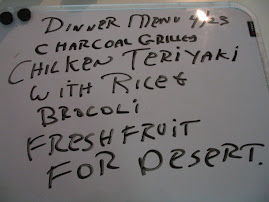 DINNER MENU 4/23
CHARCOAL GRILLED
CHICKEN TERIYAKI
WITH RICE &
BROCOLI
FRESH FRUIT
FOR DESERT.